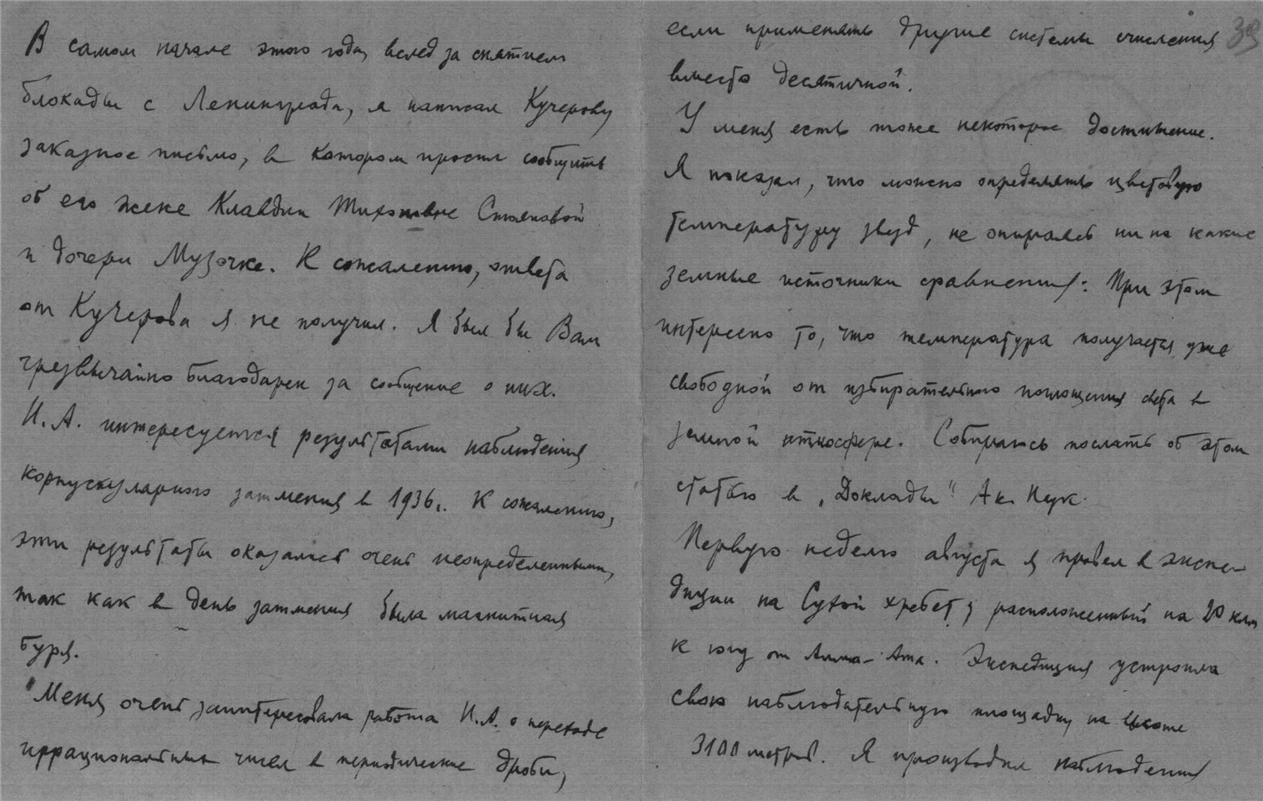 В самом начале этого года, вслед за снятием
блокады с Ленинграда, я написал Кучерову
заказное письмо, в котором просил сообщить
об его жене Клавдии Тихоновне Стояновой
и дочери Музочке. К сожалению, ответа
от Кучерова я не получил. Я был бы Вам
чрезвычайно благодарен за сообщение о них.
И.А. интересуется результатами наблюдения
корпускулярного затмения в 1936г. К сожалению,
эти результаты оказались очень неопределенными,
так как в день затмения была магнитная
буря.
Меня очень заинтересовала работа И.А. о переходе
иррациональных чисел в периодические дроби,
39
если применять другие системы счисления
вместо десятичной.
У меня есть тоже некоторое достижение.
Я показал, что можно определять цветовую
температуру звезд, не опираясь ни на какие
земные источники сравнения: При этом
интересно то, что температура получается уже
свободной от избирательного поглощения света в
земной атмосфере. Собираюсь послать об этом
статью в „Доклады“ Ак. Наук.
Первую неделю августа я провел в экспе-
диции на Сухой хребет, расположенный на 20 клм
к югу от Алма-Ата. Экспедиция устроила
свою наблюдательную площадку на высоте
3100 метров. Я производил наблюдения